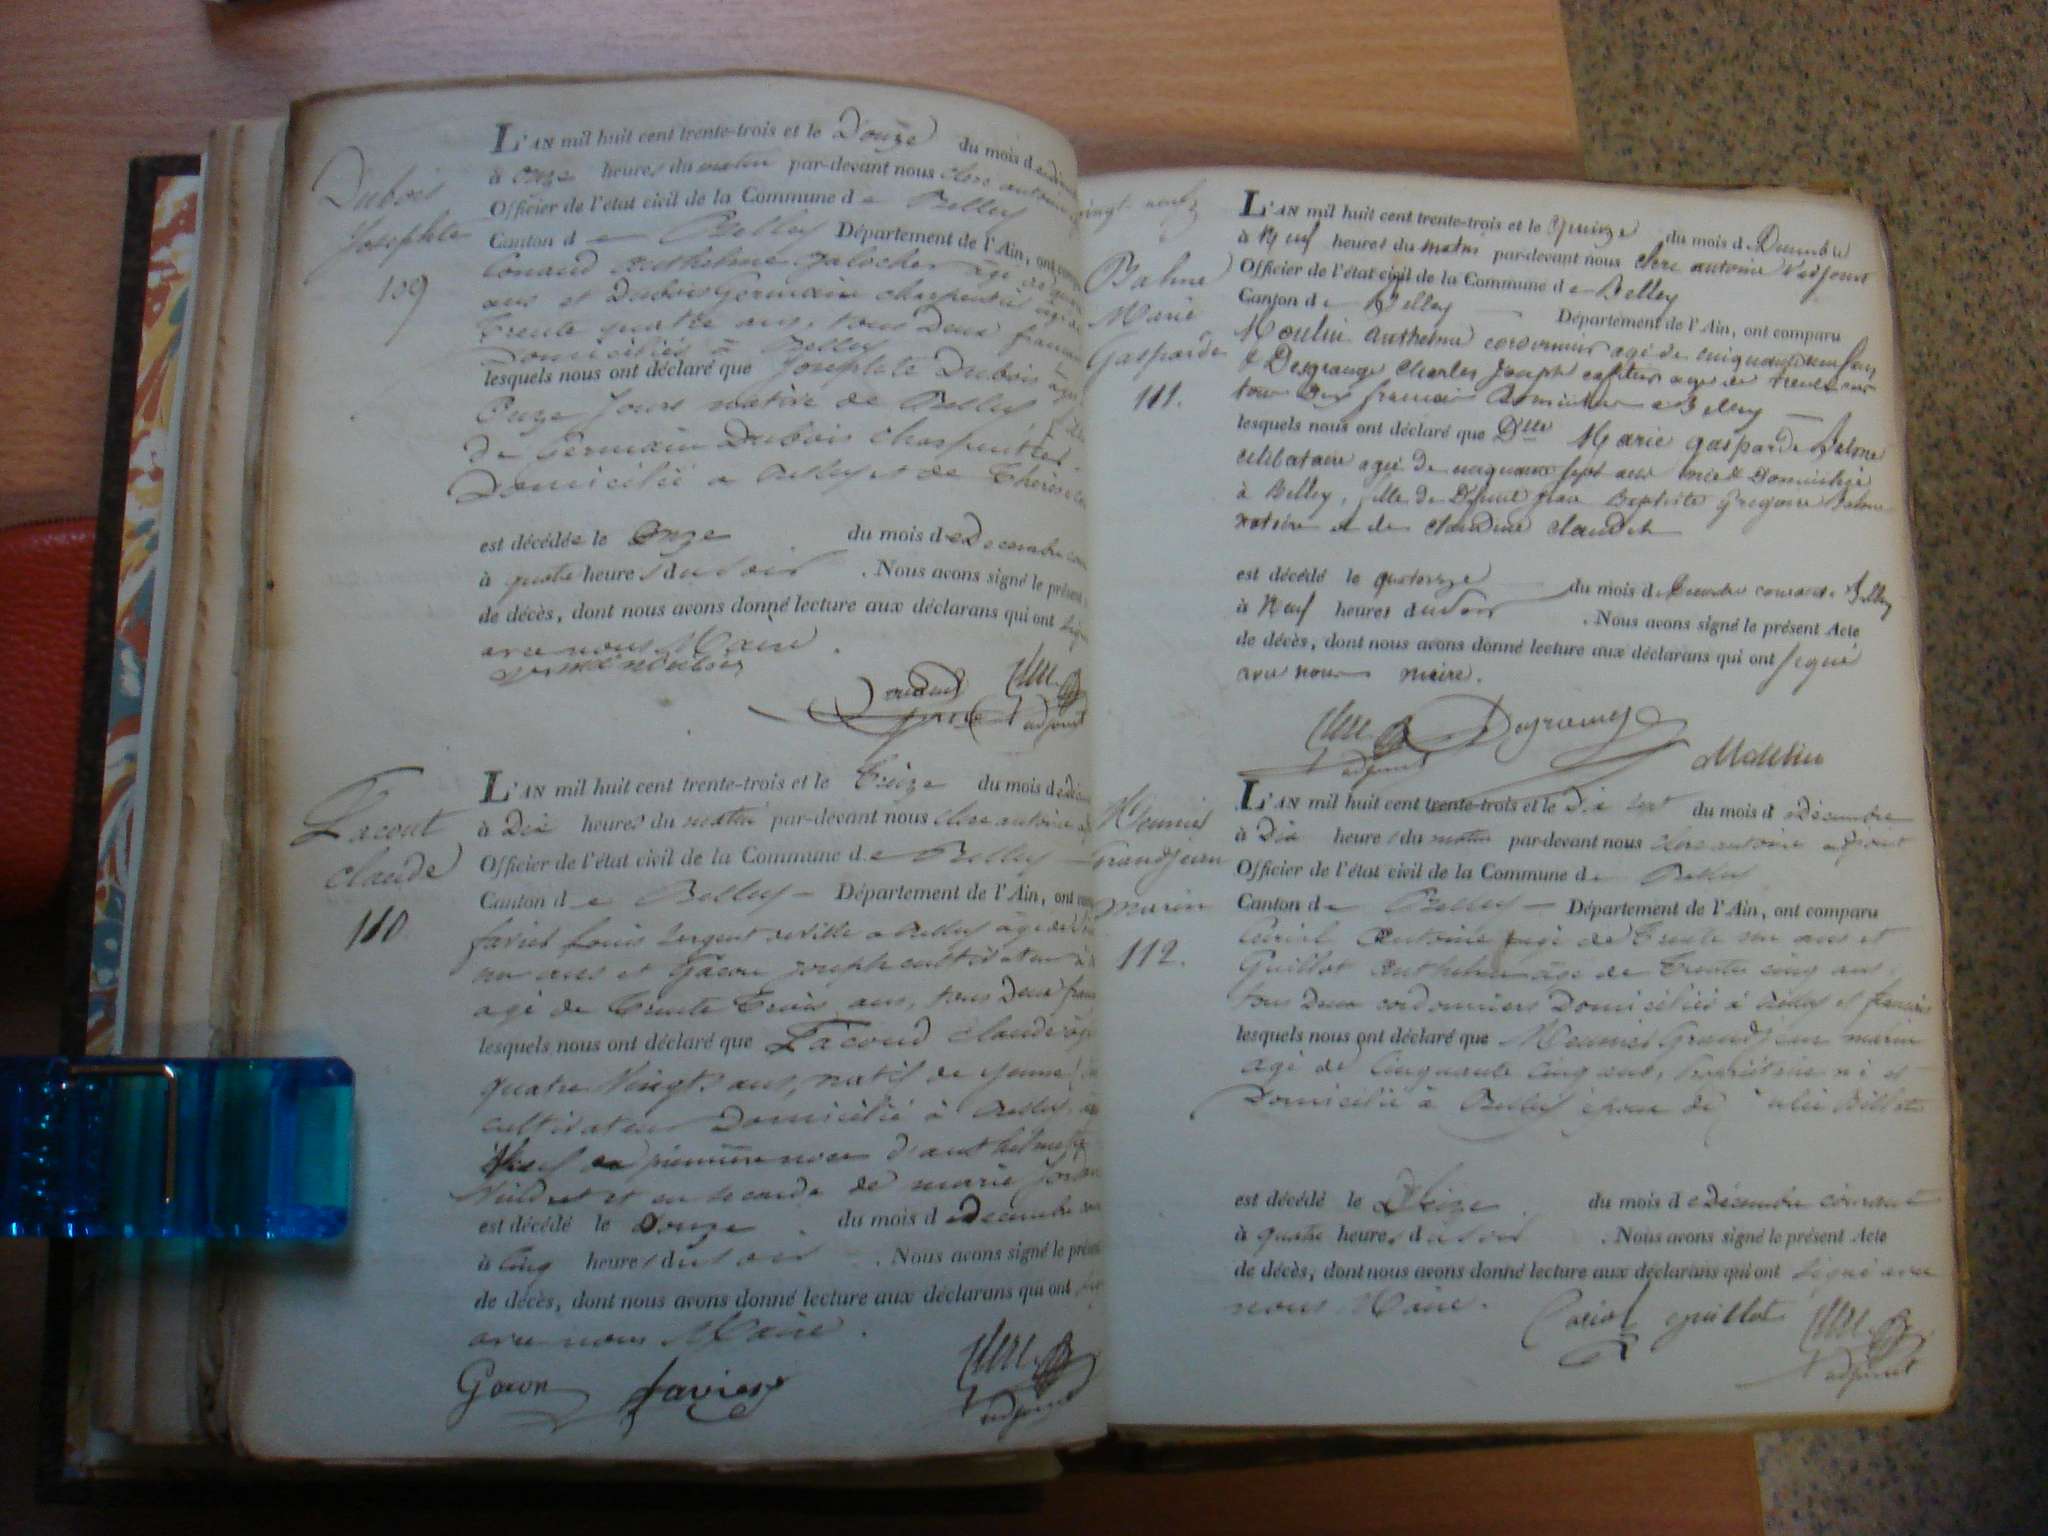 Dubois
Josephte
109
L'AN mil huit cent trente-trois et le Douze du mois de
à onze heures du matin par-devant nous Clerc antoine
Officier de l'état civil de la Commune de Belley
Canton de Belley Département de l'Ain, ont
Conand Anthelme galocher âgé de
ans et Dubois Germain charpentier âgé de
trente quatre ans, tous Deux français
Domiciliés à Belley
lesquels nous ont déclaré que Josephte Dubois âgée
Onze Jours native de Belley fille
de Germain Dubois charpentier
Domicilié a Belley et de Therese
est décédée le Onze du mois de Decembre
à quatre heures du soir . Nous avons signé le présent
de décès, dont nous avons donné lecture aux déclarans qui ont signé
avec nous Maire.
germain dubois
Clerc
adjoint
Lacout
claude
110
L'AN mil huit cent trente-trois et le Treize du mois de
à Dix heures du matin par-devant nous Clerc antoine
Officier de l'état civil de la Commune de Belley
Canton de Belley Département de l'Ain, ont
favier Louis sergent de ville a Belley âgé de
ans et Gacon joseph cultivateur
agé de Trente Trois ans, tous Deux
lesquels nous ont déclaré que Lacoud claude
quatre Vingts ans, natif de
cultivateur Domicilié à Belley
Veuf en première noces d'anthelmette
et en seconde de marie
est décédé le Douze du mois de Decembre
à Cinq heures du soir . Nous avons signé le présent
de décès, dont nous avons donné lecture aux déclarans qui ont
avec nous Maire.
Gacon favier Clerc
adjoint
vingt neuf
Balme
Marie
Gasparde
111.
L'AN mil huit cent trente-trois et le Quinze du mois de Decembre
à Neuf heures du matin par-devant nous Clerc antoine
Officier de l'état civil de la Commune de Belley
Canton de Belley Département de l'Ain, ont comparu
Moulin Anthelme cordonnier agé de cinquante ans
& Desgrange Charles Joseph agé de trente
tous Deux français Domiciliés a Belley
lesquels nous ont déclaré que Dlle Marie gasparde Balme
célibataire agée de cinquante sept ans née & Domiciliée
à Belley, fille de Défunt Jean Baptiste Gregoire Balme
notaire et de claudine
est décédé le quatorze du mois de Decembre courant à Belley
à Neuf heures du soir . Nous avons signé le présent Acte
de décès, dont nous avons donné lecture aux déclarans qui ont signé
avec nous maire.
Clerc Desgrange
adjoint Moulin
Meunier
Grandjean
marin
112.
L'AN mil huit cent trente-trois et le Dix du mois de Décembre
à Dix heures du matin par-devant nous Clerc antoine adjoint
Officier de l'état civil de la Commune de Belley
Canton de Belley Département de l'Ain, ont comparu
Antoine agé de Trente ans et
Guillot Anthelme âgé de Trente cinq ans,
tous Deux cordonniers Domiciliés à Belley et français
lesquels nous ont déclaré que Meunier Grandjean marin
agé de Cinquante Cinq ans, Propriétaire né et
Domicilié à Belley époux de Julie Billot
est décédé le Seize du mois de Décembre courant
à quatre heures du soir . Nous avons signé le présent Acte
de décès, dont nous avons donné lecture aux déclarans qui ont signé avec
nous Maire.
guillot Clerc
adjoint